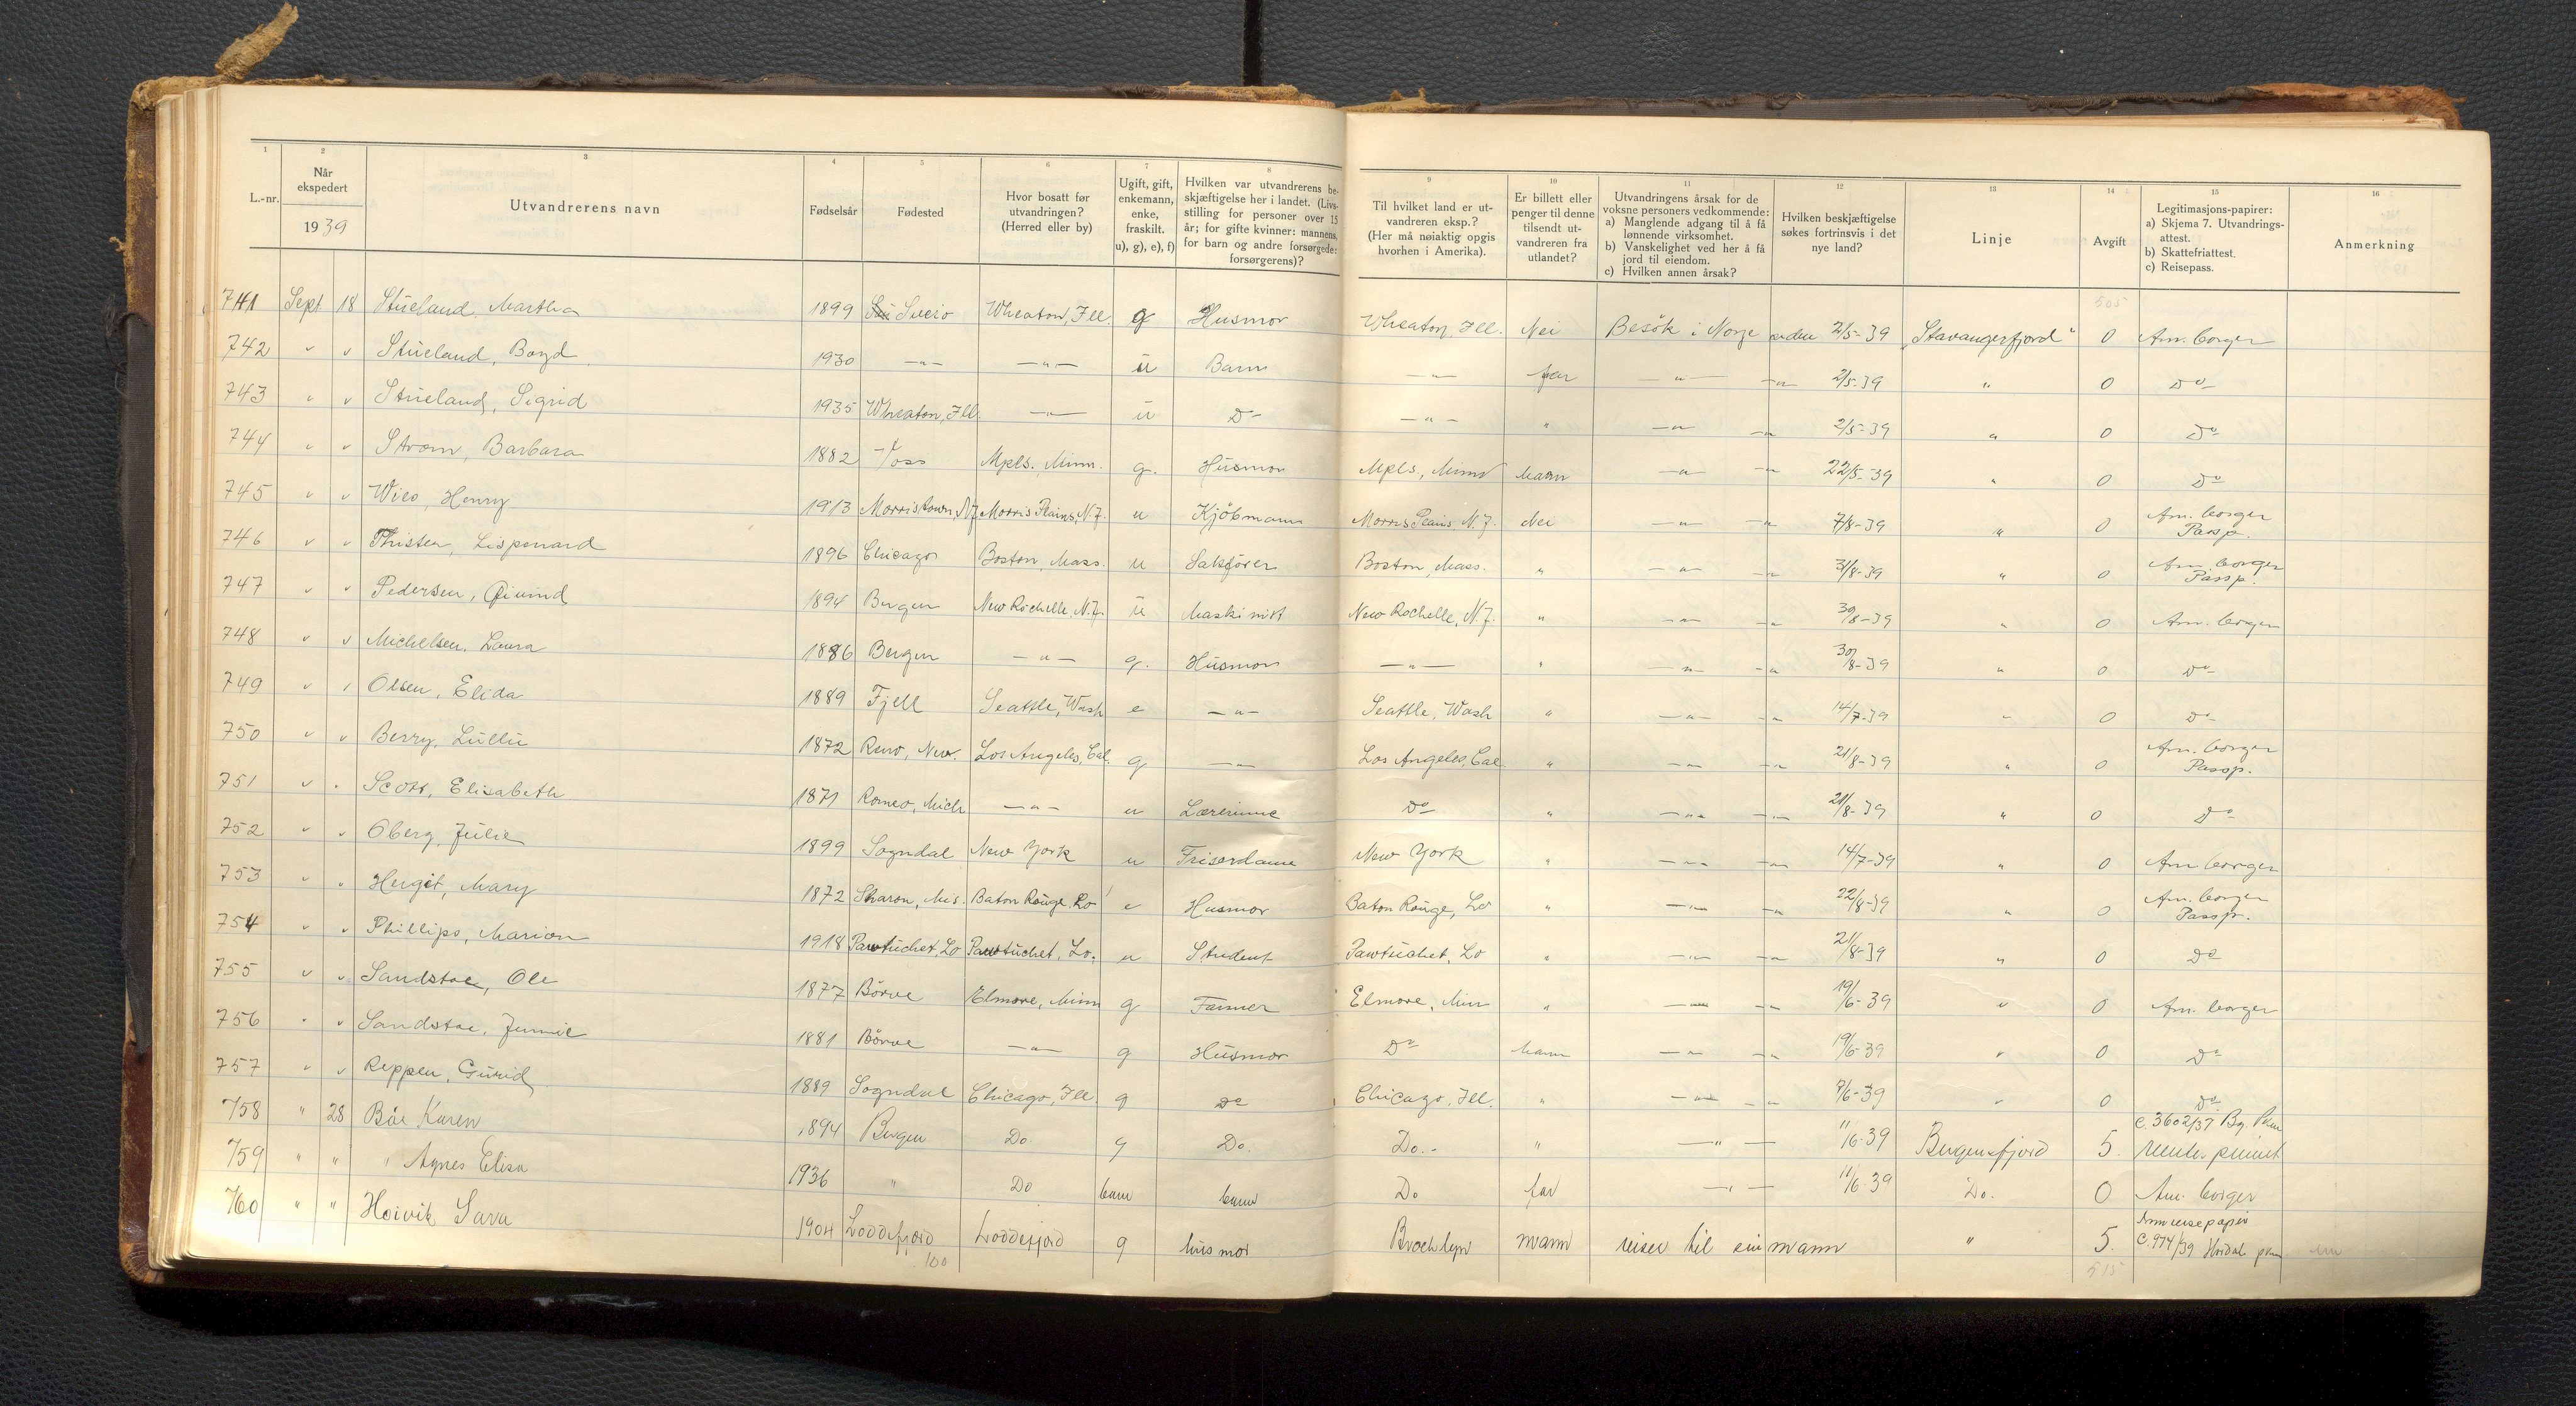 1 2 3 4 5 6 7 8
L.-nr. Når ekspedert 1939 Utvandrerens navn Fødselsår Fødested Hvor bosatt før utvandringen? (Herred eller by) Ugift, gift, enkemann, enke, fraskilt. u), g), e), f) Hvilken var utvandrerens beskjæftigelse her i landet. (Livsstilling for personer over 15 år; for gifte kvinner: mannens, for barn og andre forsørgede: forsørgerens)?
9 10 11 12 13 14 15 16
Til hvilket land er utvandreren eksp.? (Her må nøiaktig opgis hvorhen i Amerika). Er billett eller penger til denne tilsendt utvandreren fra utlandet? Utvandringens årsak for de voksne personers vedkommende: a) Manglende adgang til å få lønnende virksomhet. b) Vanskelighet ved her å få jord til eiendom. c) Hvilken annen årsak? Hvilken beskjæftigelse søkes fortrinsvis i det nye land? Linje Avgift Legitimasjons-papirer: a) Skjema 7. Utvandringsattest. b) Skattefriattest. c) Reisepass. Anmerkning
505
741 Sept 18 Stueland, Martha 1899 Sveio Wheaton, Ill. g Husmor Wheaton, Ill. Nei Besök i Norge siden 2/5-39 "Stavangerfjord" 0 Am. borger
742 " " Stueland, Boyd 1930 —"— —"— u Barn —"— far —"— —"— 2/5-39 " 0 Do
743 " " Stueland, Sigrid 1935 Wheaton, Ill. —"— u Do —"— " —"— —"— 2/5-39 " 0 Do
744 " " Strom, Barbara 1882 Voss Mpls., Minn. g. Husmor Mpls., Minn Mann —"— —"— 22/5-39 " 0 Do
745 " " Wiss, Henry 1913 Morristown, N.J. Morris Plains, N.J. u Kjöbmann Morris Plains, N.J. Nei —"— —"— 7/8-39 " 0 Am. borger Passp.
746 " " Phister, Lispenard 1896 Chicago Boston, Mass. u Sakförer Boston, Mass. " —"— —"— 31/8-39 " 0 Am. borger Passp.
747 " " Pedersen, Öivind 1894 Bergen New Rochelle, N.J. u Maskinist New Rochelle, N.J. " —"— —"— 30/8-39 " 0 Am. borger
748 " " Michelsen, Laura 1886 Bergen —"— g. Husmor —"— " —"— —"— 30/8-39 " 0 Do
749 " " Olsen, Elida 1889 Fjell Seattle, Wash e —"— Seattle, Wash " —"— —"— 14/7-39 " 0 Do
750 " " Berry, Lullu 1872 Reno, Nev. Los Angeles, Cal. g —"— Los Angeles, Cal " —"— —"— 21/8-39 " 0 Am. borger Passp.
751 " " Scott, Elisabeth 1871 Romeo, Mich —"— u Lærerinne Do " —"— —"— 21/8-39 " 0 Do
752 " " Oberg, Julie 1899 Sogndal New York u Friserdame New York " —"— —"— 14/7-39 " 0 Am borger
753 " " Hergit, Mary 1872 Sharon, Mis. Baton Rouge, Lo e Husmor Baton Rouge, Lo " —"— —"— 22/8-39 " 0 Am. borger Passp.
754 " " Phillips, Marion 1918 Pawtuchet, Lo Pawtuchet, Lo. u Student Pawtuchet, Lo " —"— —"— 21/8-39 " 0 Do
755 " " Sandstoe, Ole 1877 Börve Elmore, Minn g Farmer Elmore, Min " —"— —"— 19/6-39 " 0 Am. borger
756 " " Sandstoe, Jennie 1881 Börve —"— g Husmor Do Mann —"— —"— 19/6-39 " 0 Do
757 " " Reppen, Gurid 1889 Sogndal Chicago, Ill. g Do Chicago, Ill. " —"— —"— 7/6-39 " 0 Do
758 " 28 Böe Karen 1894 Bergen Do g Do. Do.- " —"— 11/6-39 Bergensfjord 5. C. 3602/37 Bg. Pkm
759 " " " Agnes Elisa 1936 " Do barn barn Do far —"— 11/6-39 Do. 0 Am. borger
760 " " Hoivik Sara 1904 Loddefjord Loddefjord g husmor Brocklyn mann reiser til sin mann " 5. C. 974/39
100 515